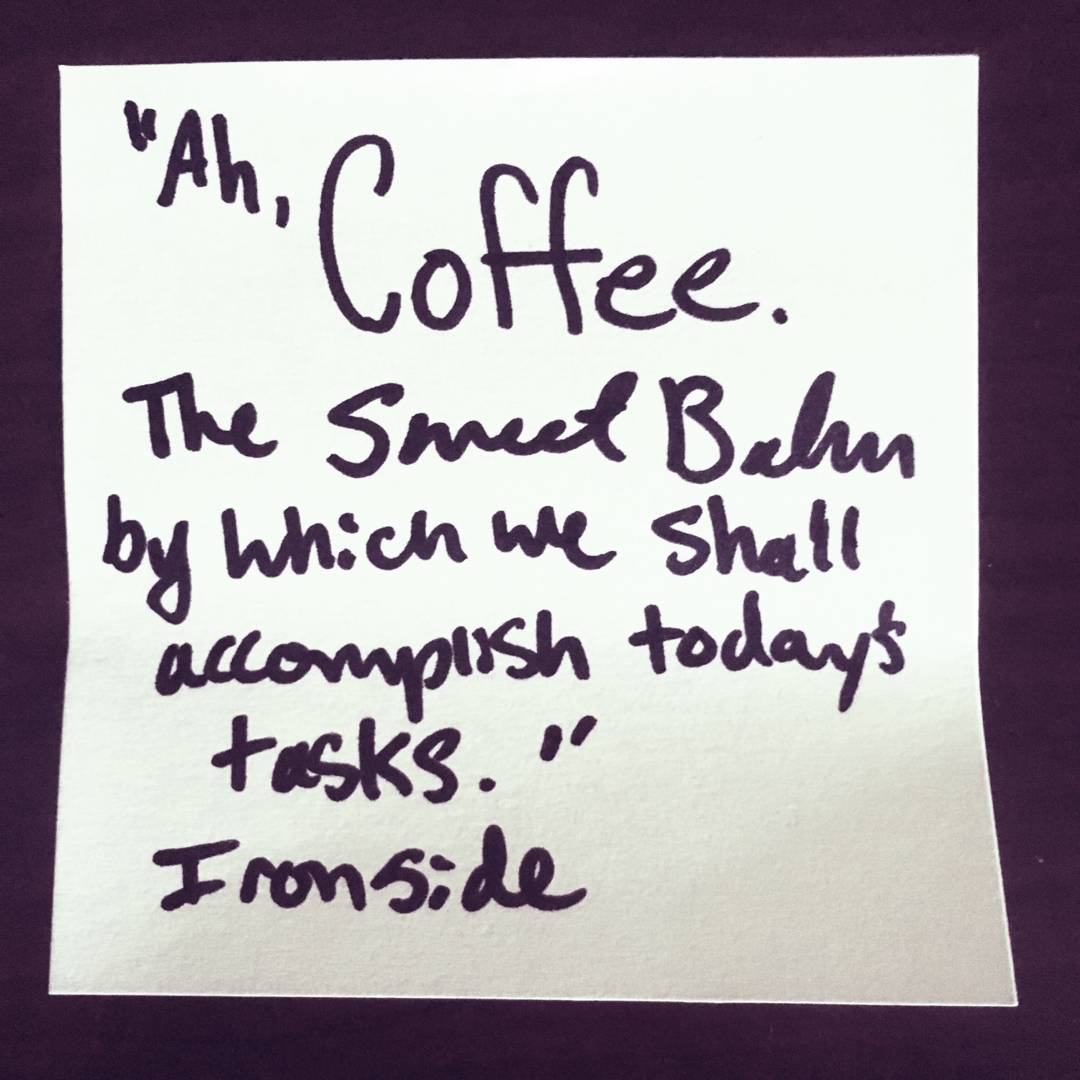 "Ah, Coffee.
The Sweet Balm
by which we shall
accomplish today's
tasks."
Ironside